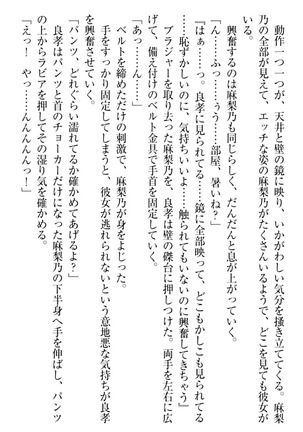 動作一つ一つが、天井と壁の鏡に映り、いかがわしい気分を掻き立ててくる。麻梨
乃の全部が見えて、エッチな姿の麻梨乃がたくさんいるようで、どこを向いても彼女が
いる。
興奮するのは麻梨乃も同じらしく、だんだんと息が上がっていく。
「ん……ふっ……ぅう……部屋、暑いね?」
「はぁ……っ。良孝に見られてる……鏡に全部映って、どこもかしこも見られてる
……恥ずかしいのに、気持ちいいよ……触られてもいないのに興奮してきちゃう」
ブラジャーを取り去った麻梨乃を、良孝は壁の磔台に押しつけた。両手を左右に広
げて、備え付けのベルト金具で手首を固定していく。
「あっ……ん……」
ベルトを締めただけの刺激で、麻梨乃が身をよじった。
手をすっかり固定してしまうと、彼女が逃れられないという意地悪な気持ちが良孝
を興奮させていく。
「パンツ、どれぐらい濡れてるか確かめてあげるよ?」
良孝はパンツと首のチョーカーだけになった麻梨乃の下半身へ手を伸ばし、パンツ
の上からラビアを押してその湿り気を確かめる。
「えっ! やっ……んんんんっ!」